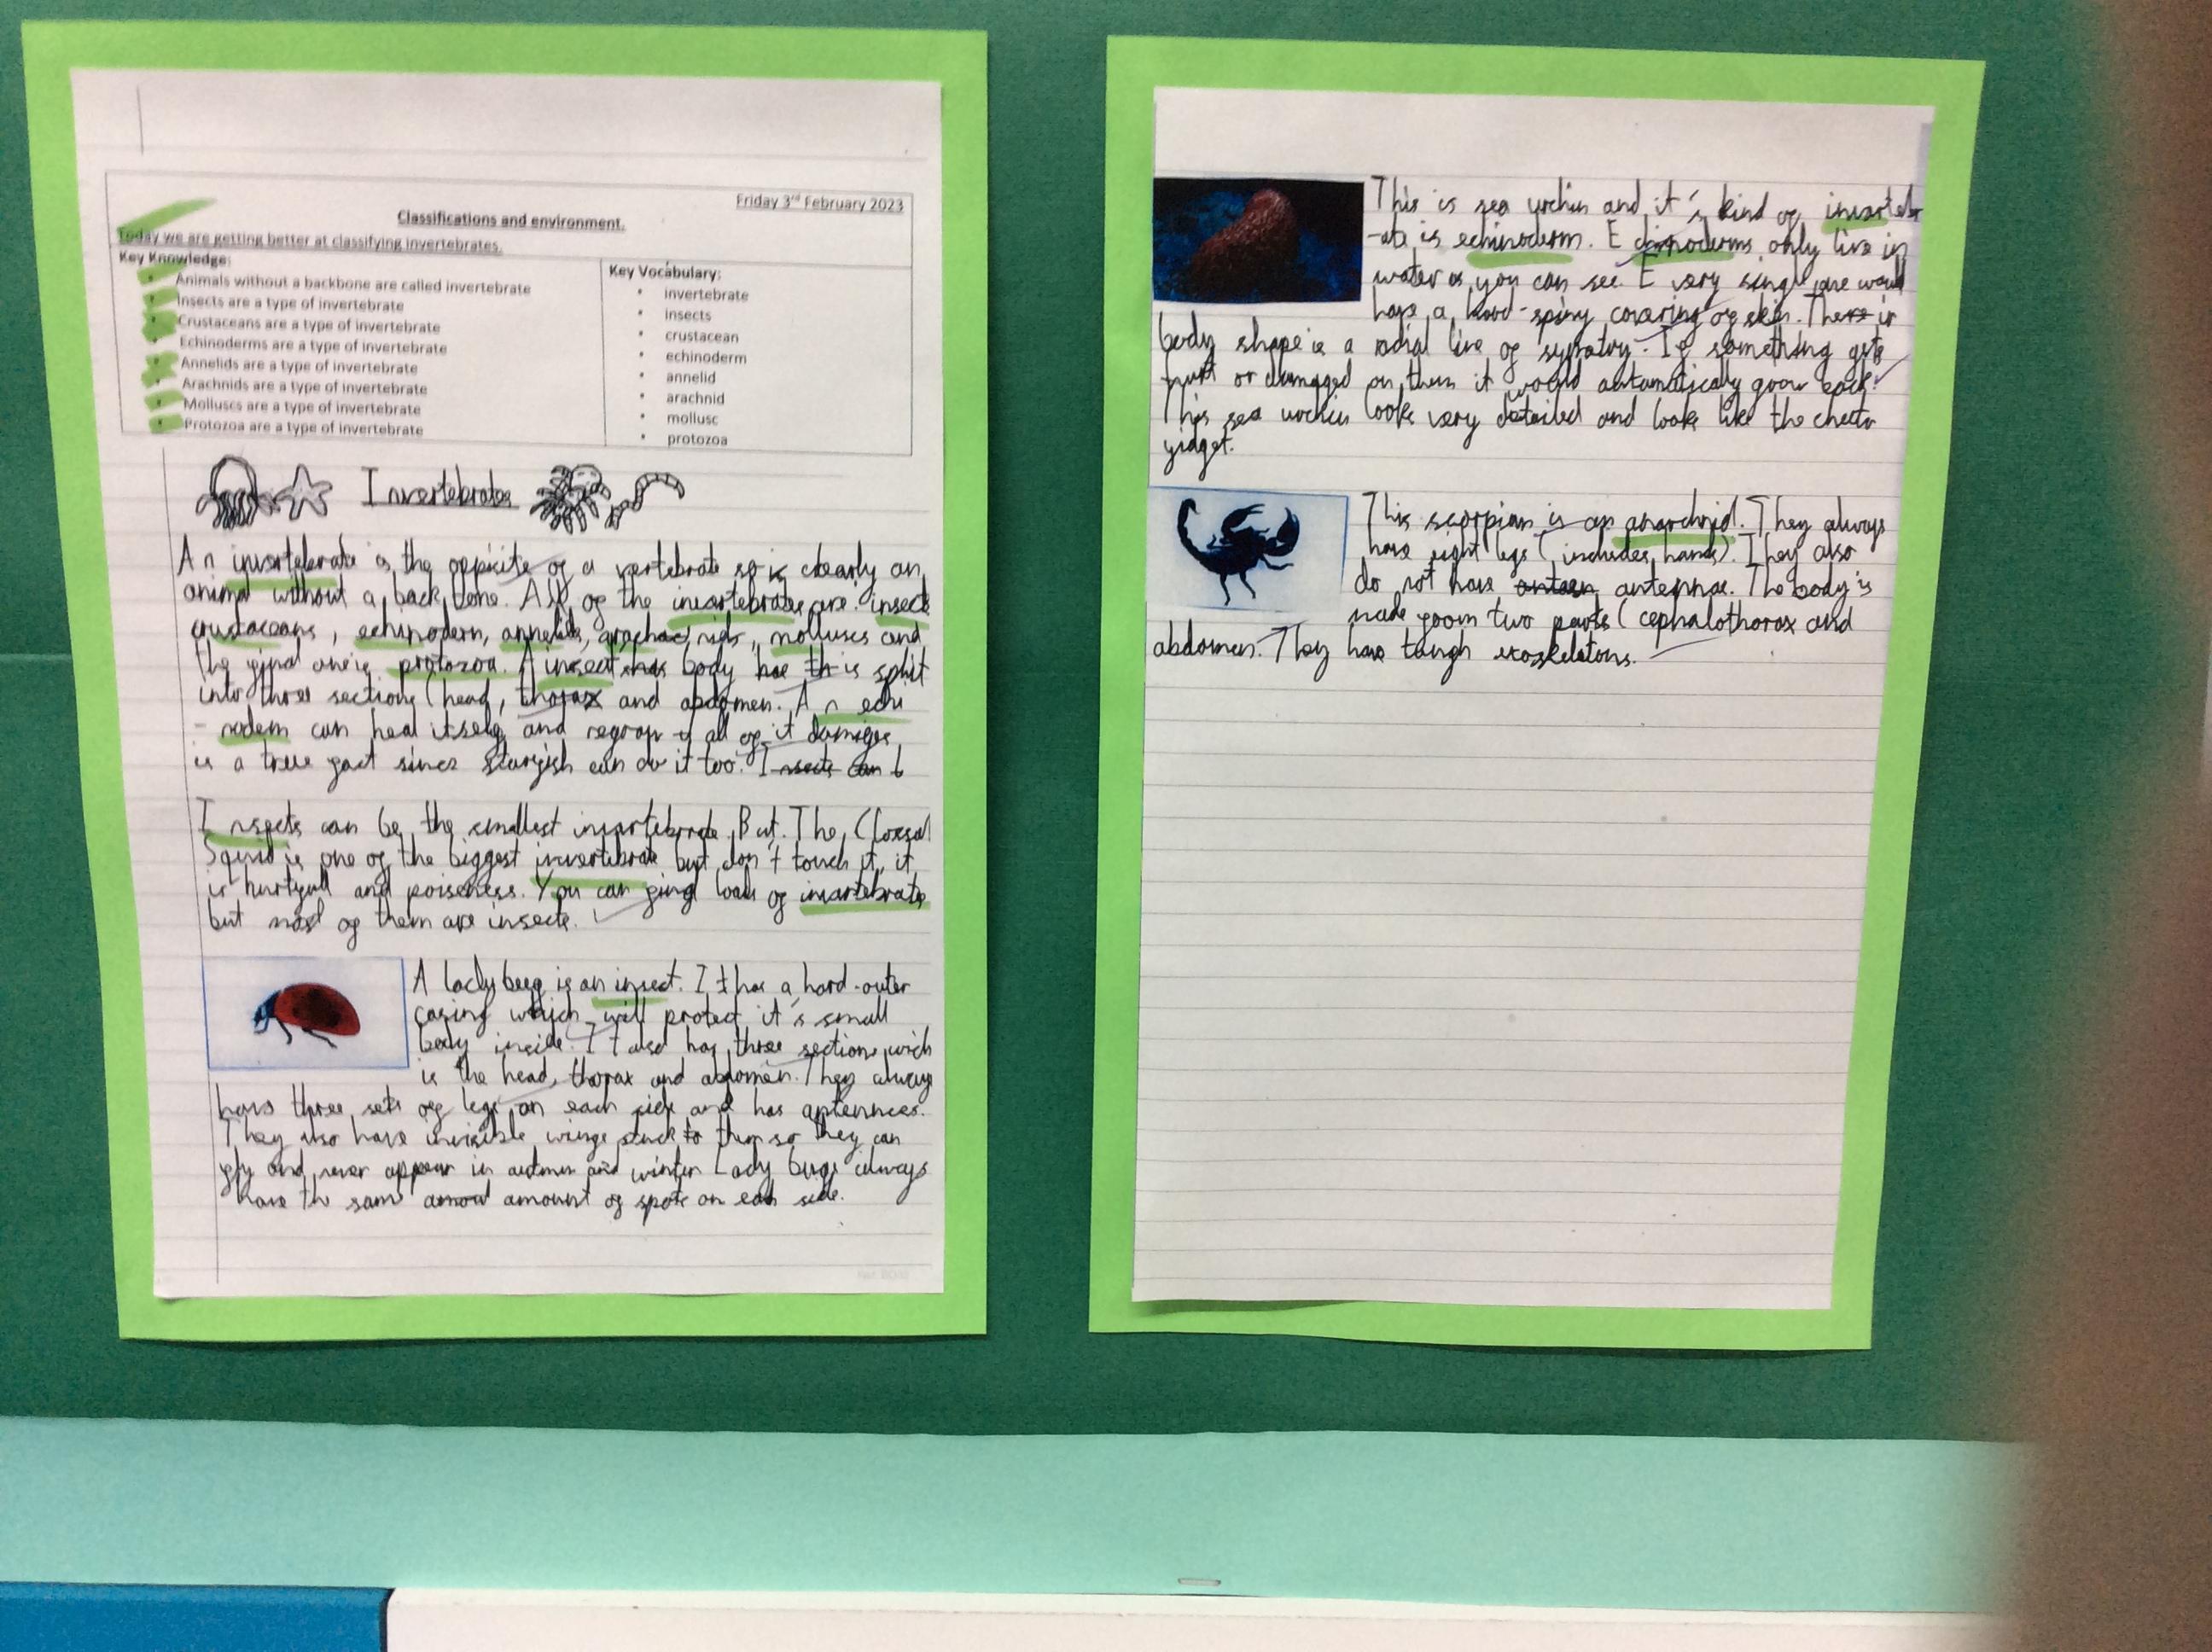 Friday 3rd February 2023
Classifications and environment.
Today we are getting better at classifying invertebrates.
Key Knowledge:
Animals without a backbone are called invertebrate
Insects are a type of invertebrate
Crustaceans are a type of invertebrate
Echinoderms are a type of invertebrate
Annelids are a type of invertebrate
Arachnids are a type of invertebrate
Molluscs are a type of invertebrate
Protozoa are a type of invertebrate
Key Vocabulary:
invertebrate
insects
crustacean
echinoderm
annelid
arachnid
mollusc
protozoa
Invertebrates
An invertebrate is the oppisite of a vertebrate so is clearly an
animal without a back bone. All of the invertebrates are. insect
crustaceans, echinoderm, annelids, molluscs and
the final one is protozoa. A insect body is split
into three sections (head, thorax and abdomen. An echi
-noderm can heal itself and regrow if all of it damiges
is a true fact since starfish can do it too. Insects can b
Insects can be the smallest invertebrate. But. The
Squid is one of the biggest invertebrate but don't touch it, it
is hurtfull and poiseness. You can find loads of invertebrate
but most of them are insects.
A lady beeg is an insect. It has a hard-outer
casing which will protect it's small
body inside. It also has three sections wich
is the head, thorax and abdomen. They always
have three sets of legs on each side and has antennces.
They also have invisible wings stuck to them so they can
fly and never appear in autumn and winter Lady bugs always
have th same amoud amount of spots on each side.
This is sea urchin and it's kind of invertebr
-ate is echinoderm. Echinoderms only live in
water as you can see. Every single one would
have a hard-spiny covering of skin. There is
body shape is a radial line of symatry. If something gets
hurt or damaged on them it would automatically grow back.
This sea urchin looks very detailed and looks like the cheeta
fidget.
This scorpian is an anarchnid. They always
have eight legs (includes hands). They also
do not have anteen antennae. The body is
made from two parts (cephalothorax and
abdomen. They have tough exoskeletons.